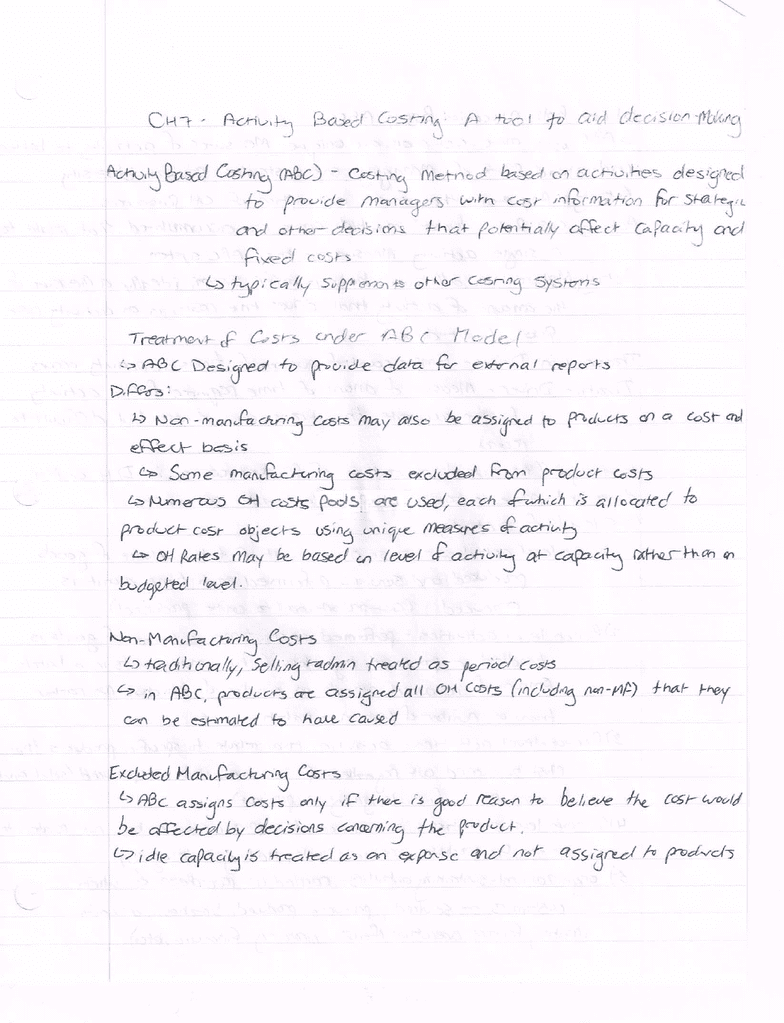 CH7 - Activity Based Costing: A tool to aid decision-Making
Activity Based Costing (ABC) - Costing Method based on activities designed
to provide managers with cost information for strategic
and other decisions that potentially affect capacity and
fixed costs
↳ typically supplements other costing systems
Treatment of Costs under ABC Model
↳ ABC Designed to provide data for external reports
Differs:
↳ Non-manufacturing costs may also be assigned to products on a cost and
effect basis
↳ Some manufacturing costs excluded from product costs
↳ Numerous OH costs pools are used, each of which is allocated to
product cost objects using unique measures of activity
↳ OH Rates may be based on level of activity at capacity rather than on
budgeted level.
Non-Manufacturing Costs
↳ traditionally, Selling + admin treated as period costs
↳ in ABC, products are assigned all OH costs (including non-MF) that they
can be estimated to have caused
Excluded Manufacturing Costs
↳ ABC assigns costs only if there is good reason to believe the cost would
be affected by decisions concerning the product.
↳ idle capacity is treated as an expense and not assigned to products